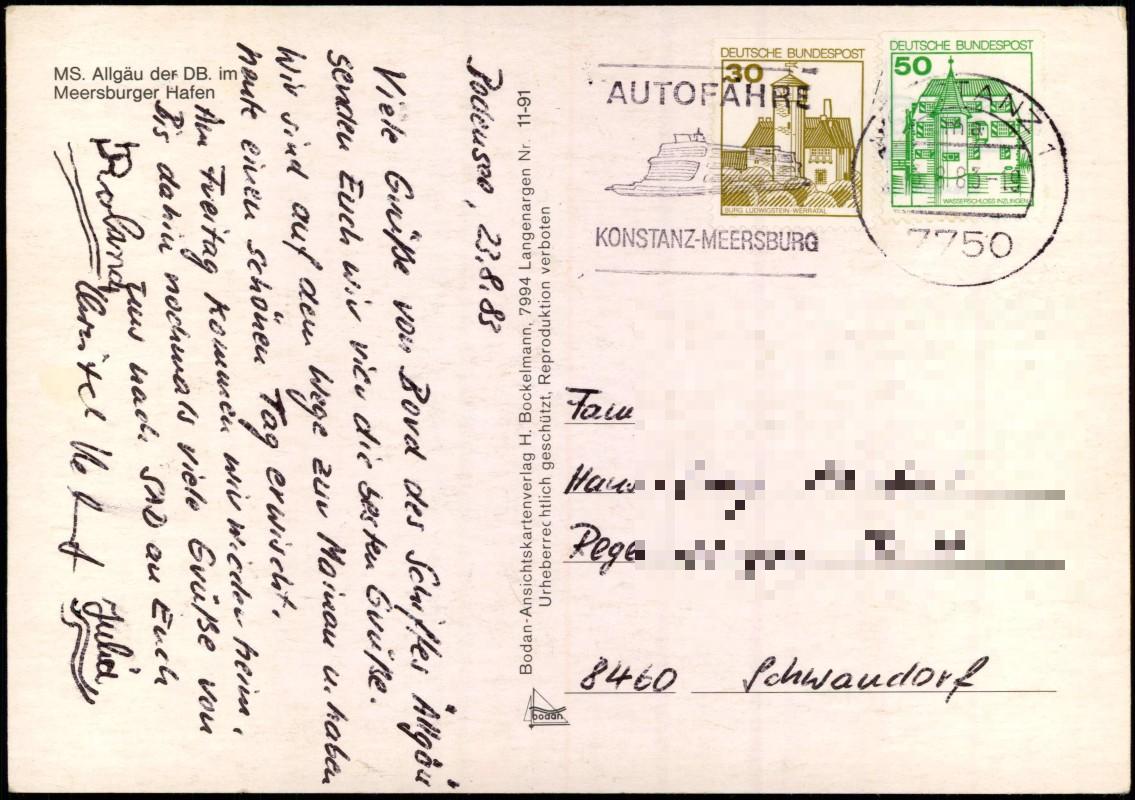 MS. Allgäu der DB. im
Meersburger Hafen
Bodensee, 23.8.83
Viele Grüße von Bord des Schiffes "Allgäu"
senden Euch wir vier die besten Grüße.
Wir sind auf dem Wege zur Mainau u. haben
heute einen schönen Tag erwischt.
Am Freitag kommen wir wieder heim.
Bis dahin nochmals viele Grüße von
uns nach SAD an Euch
Roland
Julia
Bodan-Ansichtskartenverlag H. Bockelmann, 7994 Langenargen Nr. 11-91
Urheberrechtlich geschützt, Reproduktion verboten
bodan
AUTOFÄHRE
KONSTANZ-MEERSBURG
DEUTSCHE BUNDESPOST
30
BURG LUDWIGSTEIN-WERRATAL
DEUTSCHE BUNDESPOST
50
WASSERSCHLOSS INZLINGEN
7750
Fam
8460 Schwandorf